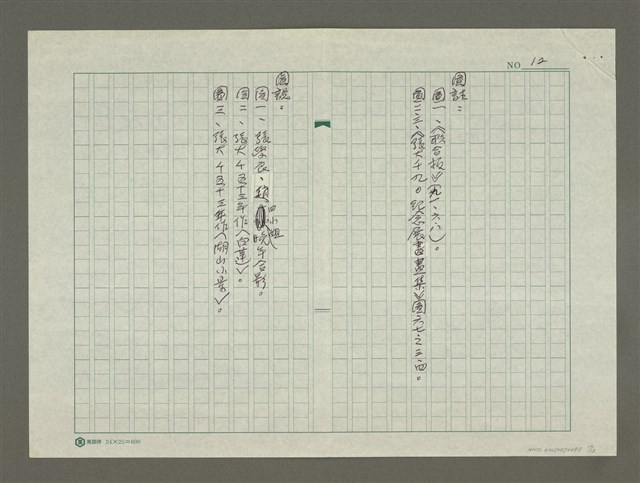 NO 12
圖註：
圖一、《聯合報》（九一、六、八）。
圖二、三、《張大千九○紀念展書畫集》圖六七之三、四。
圖說：
圖一、張學良、趙四小姐晚年合影。
圖二、張大千五十三年作〈白蓮〉。
圖三、張大千五十三年作〈湖山小景〉。
24×25=600